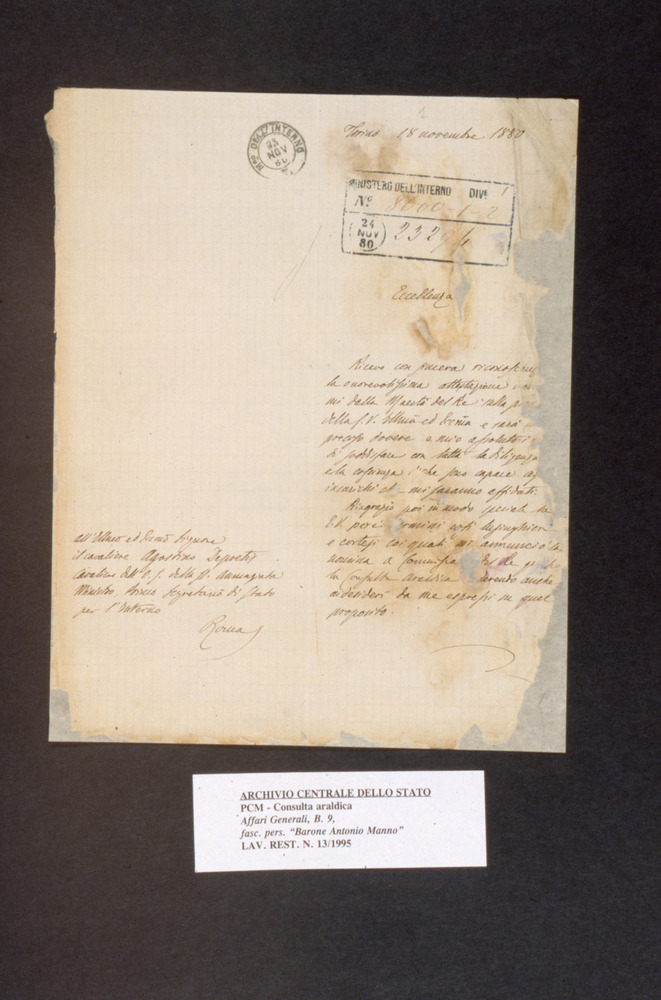 Torino 18 novembre 1880
Mro DELL'INTERNO
23
NOV
80
MINISTERO DELL'INTERNO DIVe 1
No 8000-1-2
24
NOV
80
23294
Eccellenza
Ricevo con sincera
la onorevolissima attestazione
mi dalla Maestà del Re sulla
della S. V. Illma ed Eccma e sarà
preciso dovere e mio
di soddisfare con tutta la diligenza
e la
incarichi che mi saranno affidati.
Ringrazio poi in modo speciale la
E. V. pei termini così
e cortesi coi quali mi annunciò la
nomina a Commissario del Re
la Consulta Araldica avendo anche
desideri da me espressi in quel
proposito.
all'Illmo ed Eccmo Signore
il cavaliere Agostino Depretis
Cavaliere dell'O. S. della SS. Annunziata
Ministro, Primo Segretario di Stato
per l'Interno
Roma
ARCHIVIO CENTRALE DELLO STATO
PCM - Consulta araldica
Affari Generali, B. 9,
fasc. pers. “Barone Antonio Manno”
LAV. REST. N. 13/1995